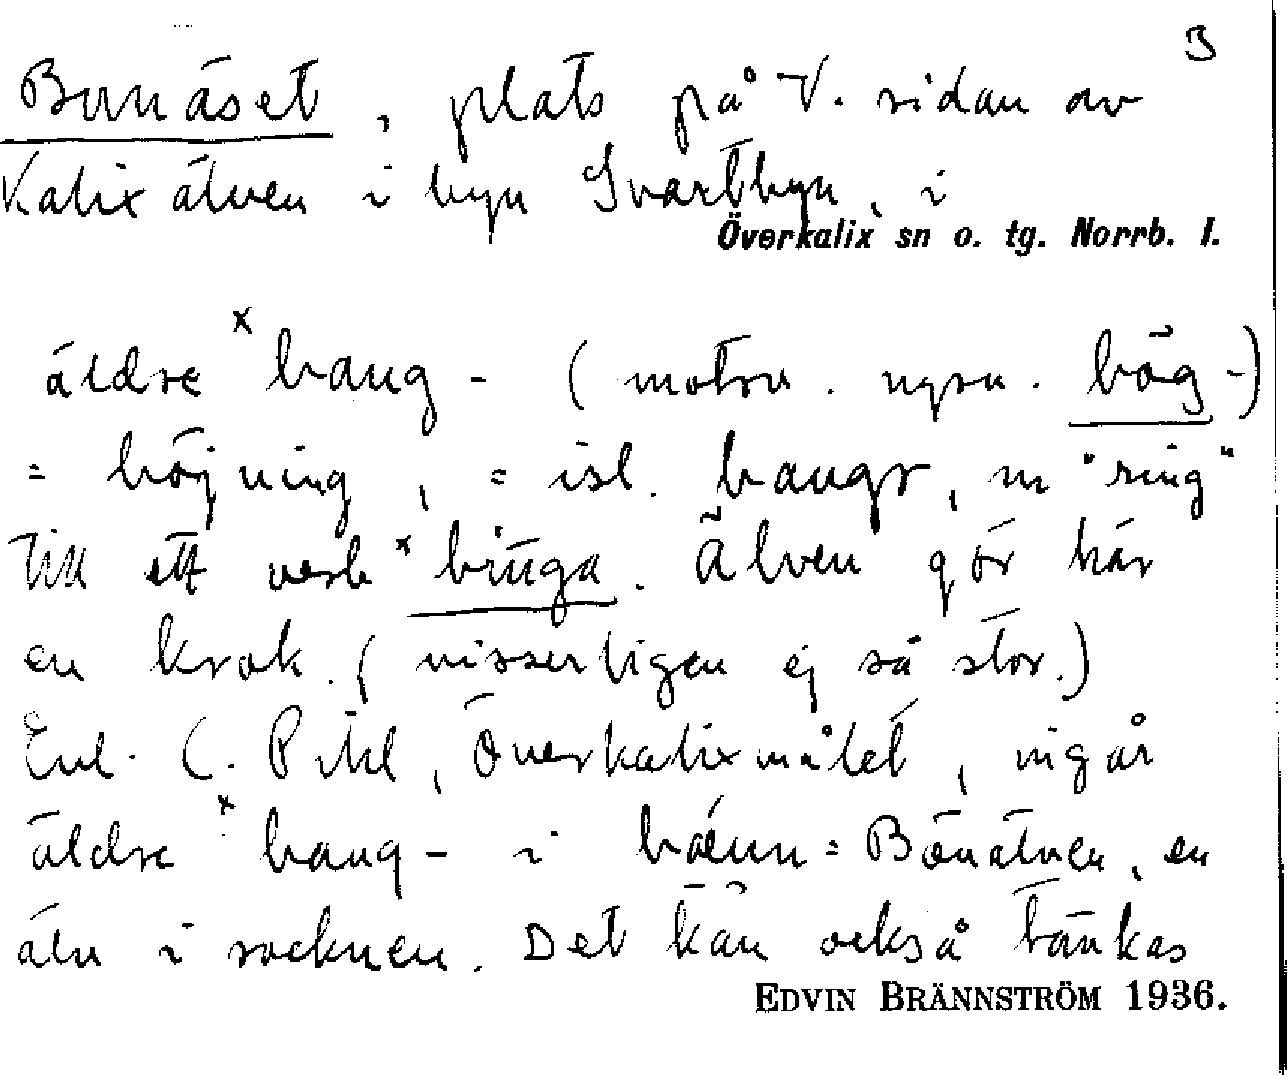 3
Bunäset, plats på V. sidan av
Kalix älven i byn Svartbyn, i
Överkalix sn o. tg. Norrb. l.
äldre ˣbaug- (motsv. nysv. bōg-)
= böjning, = isl. baugr, m "ring"
till ett verb ˣbiūga. Älven gör här
en krok. (visserligen ej så stor.)
Enl. C. Pihl, Överkalixmålet, ingår
äldre ˣbaug- i = Bönälven, en
älv i socknen. Det kan också tänkas
EDVIN BRÄNNSTRÖM 1936.